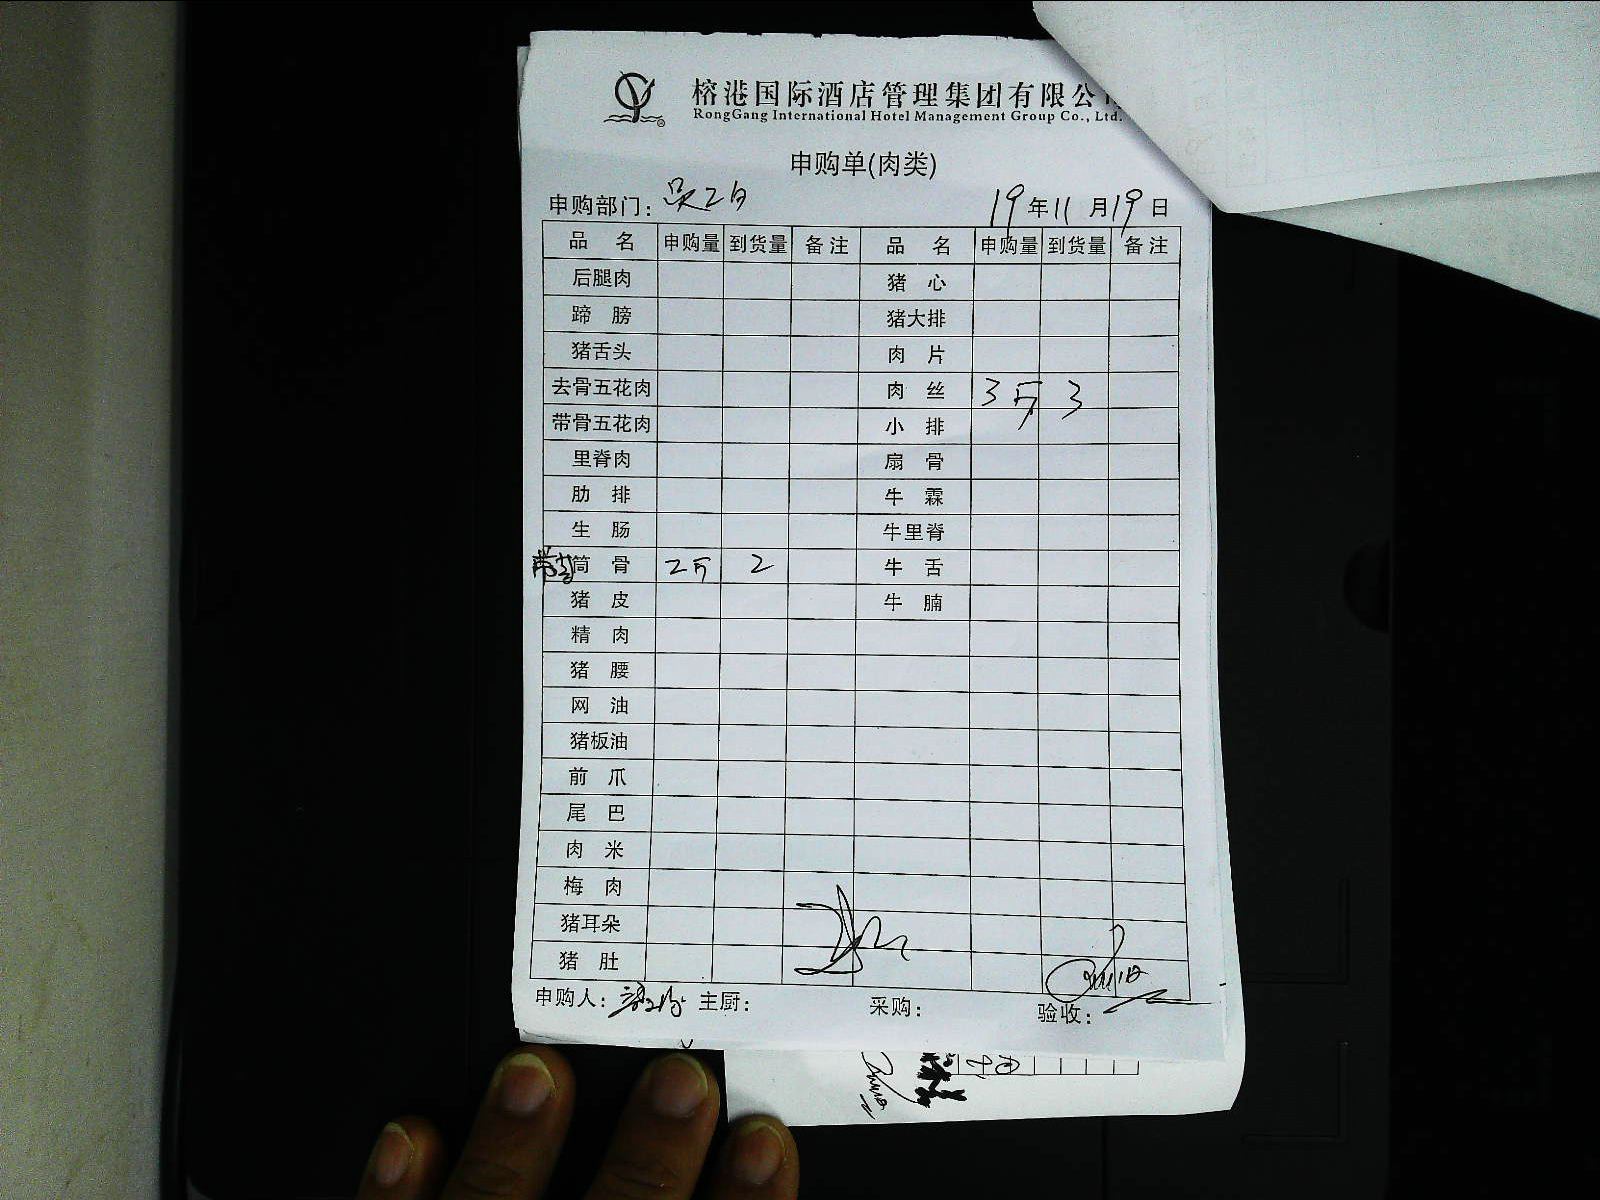 榕港国际酒店管理集团有限公司
RongGang International Hotel Management Group Co., Ltd.
申购单(肉类)
申购部门: 19年11月19日
品名 申购量 到货量 备注 品名 申购量 到货量 备注
后腿肉 猪心
蹄膀 猪大排
猪舌头 肉片
去骨五花肉 肉丝 3斤 3
带骨五花肉 小排
里脊肉 扇骨
肋排 牛霖
生肠 牛里脊
筒骨 2斤 2 牛舌
猪皮 牛腩
精肉
猪腰
网油
猪板油
前爪
尾巴
肉米
梅肉
猪耳朵
猪肚
申购人: 主厨: 采购: 验收: